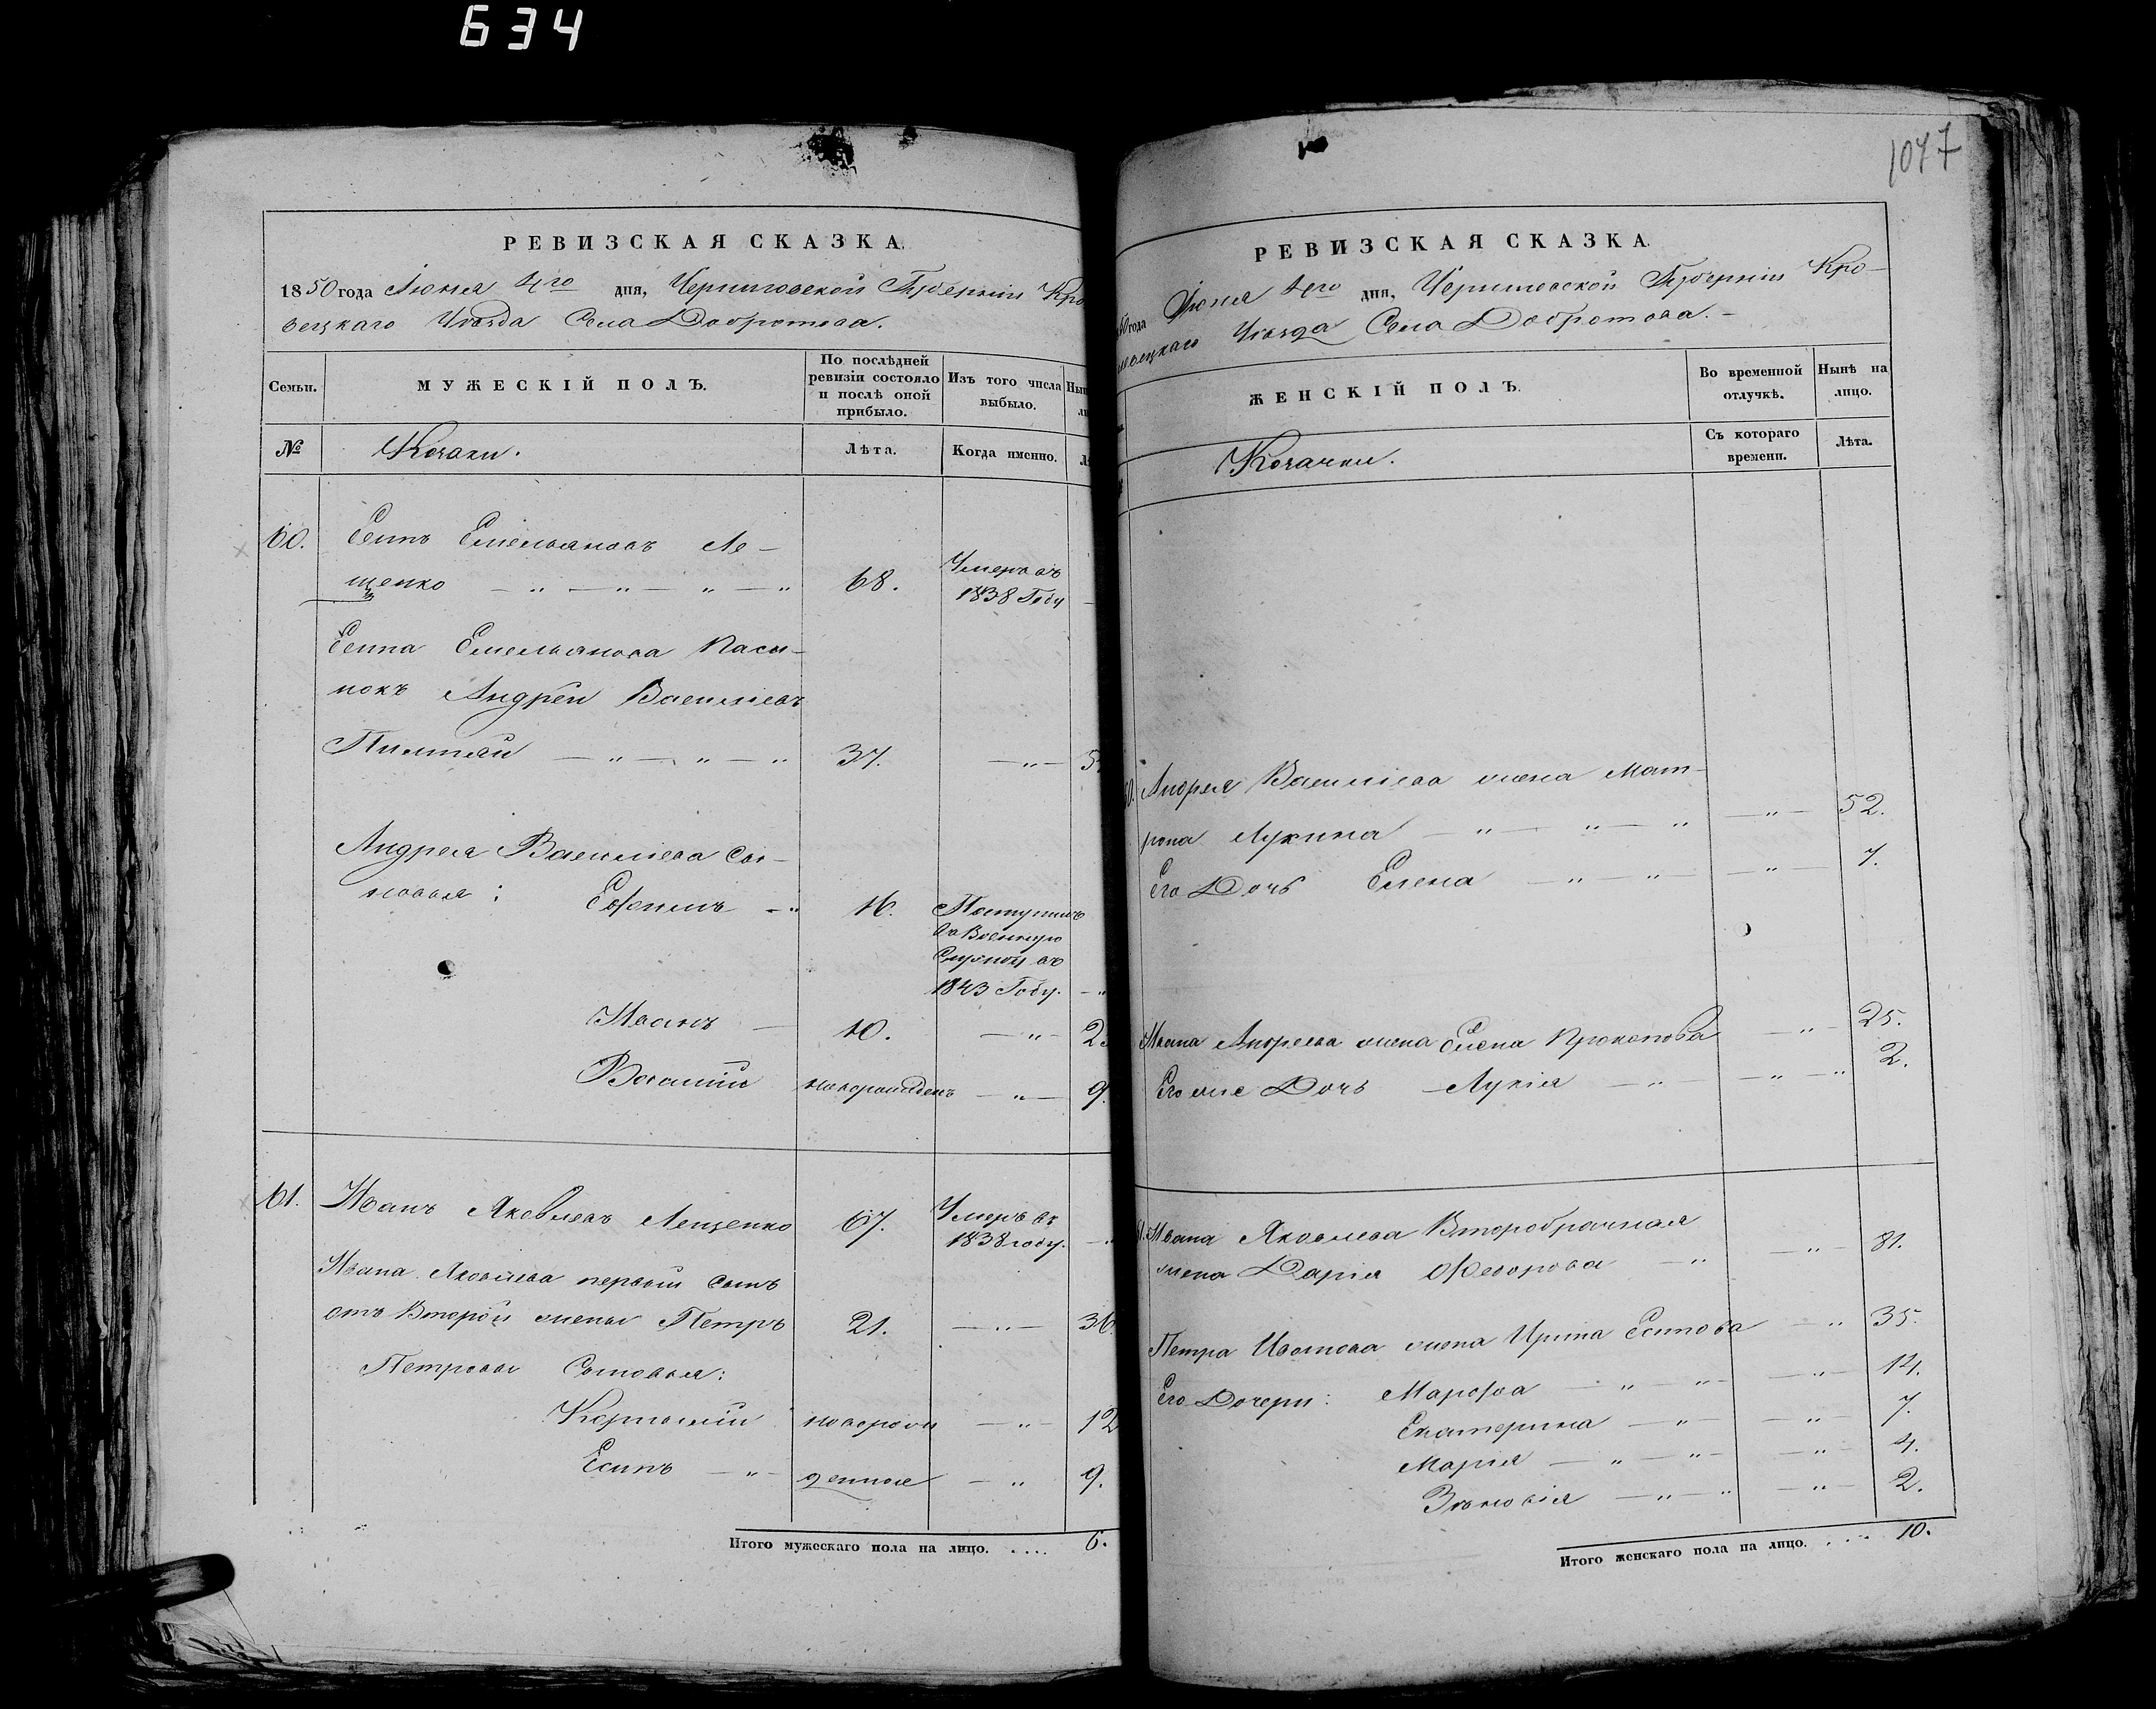 634
РЕВИЗСКАЯ СКАЗКА.
1850 года Июня 4го дня, Черниговской Губерніи Кро
вецкаго Уѣзда Села Добротова.
Семьи.
МУЖЕСКІЙ ПОЛЪ.
По послѣдней
ревизіи состояло
и послѣ оной
прибыло.
Изъ того числа
выбыло.
№
Козаки.
Лѣта.
Когда именно.
60.
Есипъ Емельяновъ Ле-
щенко 68. Умеръ въ
1838 Году
Есипа Емельянова Пасы-
нокъ Андрей Васильевъ
37.
Андрея Васильева Сы-
новья: Ефимъ 16. Поступилъ
въ Военную
Службу въ
1843 Году.
Иванъ 10.
Василій новорожденъ 9.
61. Иванъ Яковлевъ Лещенко 67. Умеръ въ
1838 году.
Ивана Яковлева первый сынъ
отъ Второй жены Петръ 21. 36.
Петровы Сыновья:
Корнилій новорож 12
Есипъ денные 9.
Итого мужескаго пола на лицо. .... 6.
1047
РЕВИЗСКАЯ СКАЗКА.
года Июня 4го дня, Черниговской Губерніи Кро-
левецкаго Уѣзда Села Добротова.
ЖЕНСКІЙ ПОЛЪ.
Во временной
отлучкѣ.
Нынѣ на
лицо.
Козачки.
Съ котораго
времени.
Лѣта.
Андрея Васильева жена Мат-
рона Лукина 52.
Его Дочь Елена 7.
Ивана Андреева жена Елена Прокопова 25.
Его же Дочь Лукія 2.
Ивана Яковлева Второбрачная
жена Дарія Федорова 81.
Петра Иванова жена Ирина Есипова 35.
Его Дочери: Марфа 14.
Екатерина 7.
Марія 4.
Зѣновія 2.
Итого женскаго пола на лицо. .... 10.